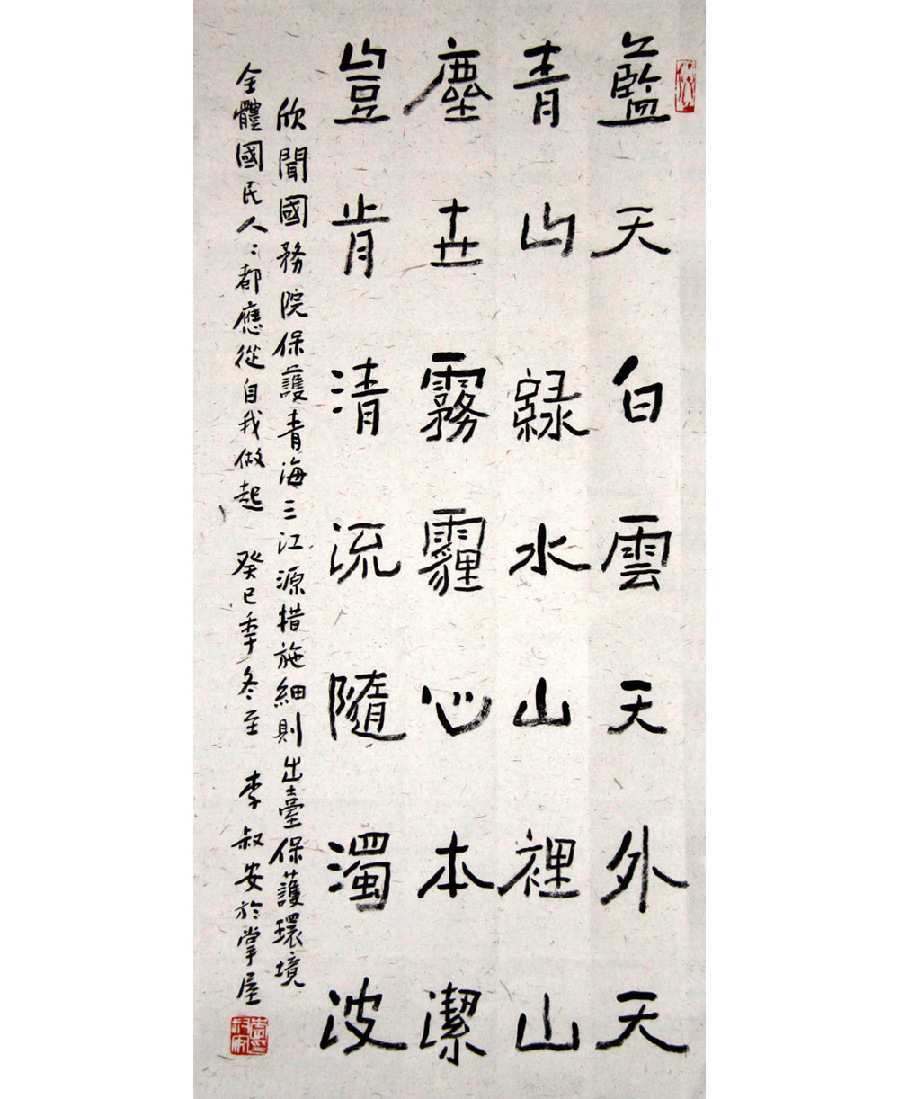 藍天白雲天外天
青山綠水山裡山
塵世霧霾心本潔
豈肯清流隨濁波
欣聞國務院保護青海三江源措施細則出臺保護環境
全體國民人〻都應從自我做起 癸巳季冬至 李叔安於掌屋